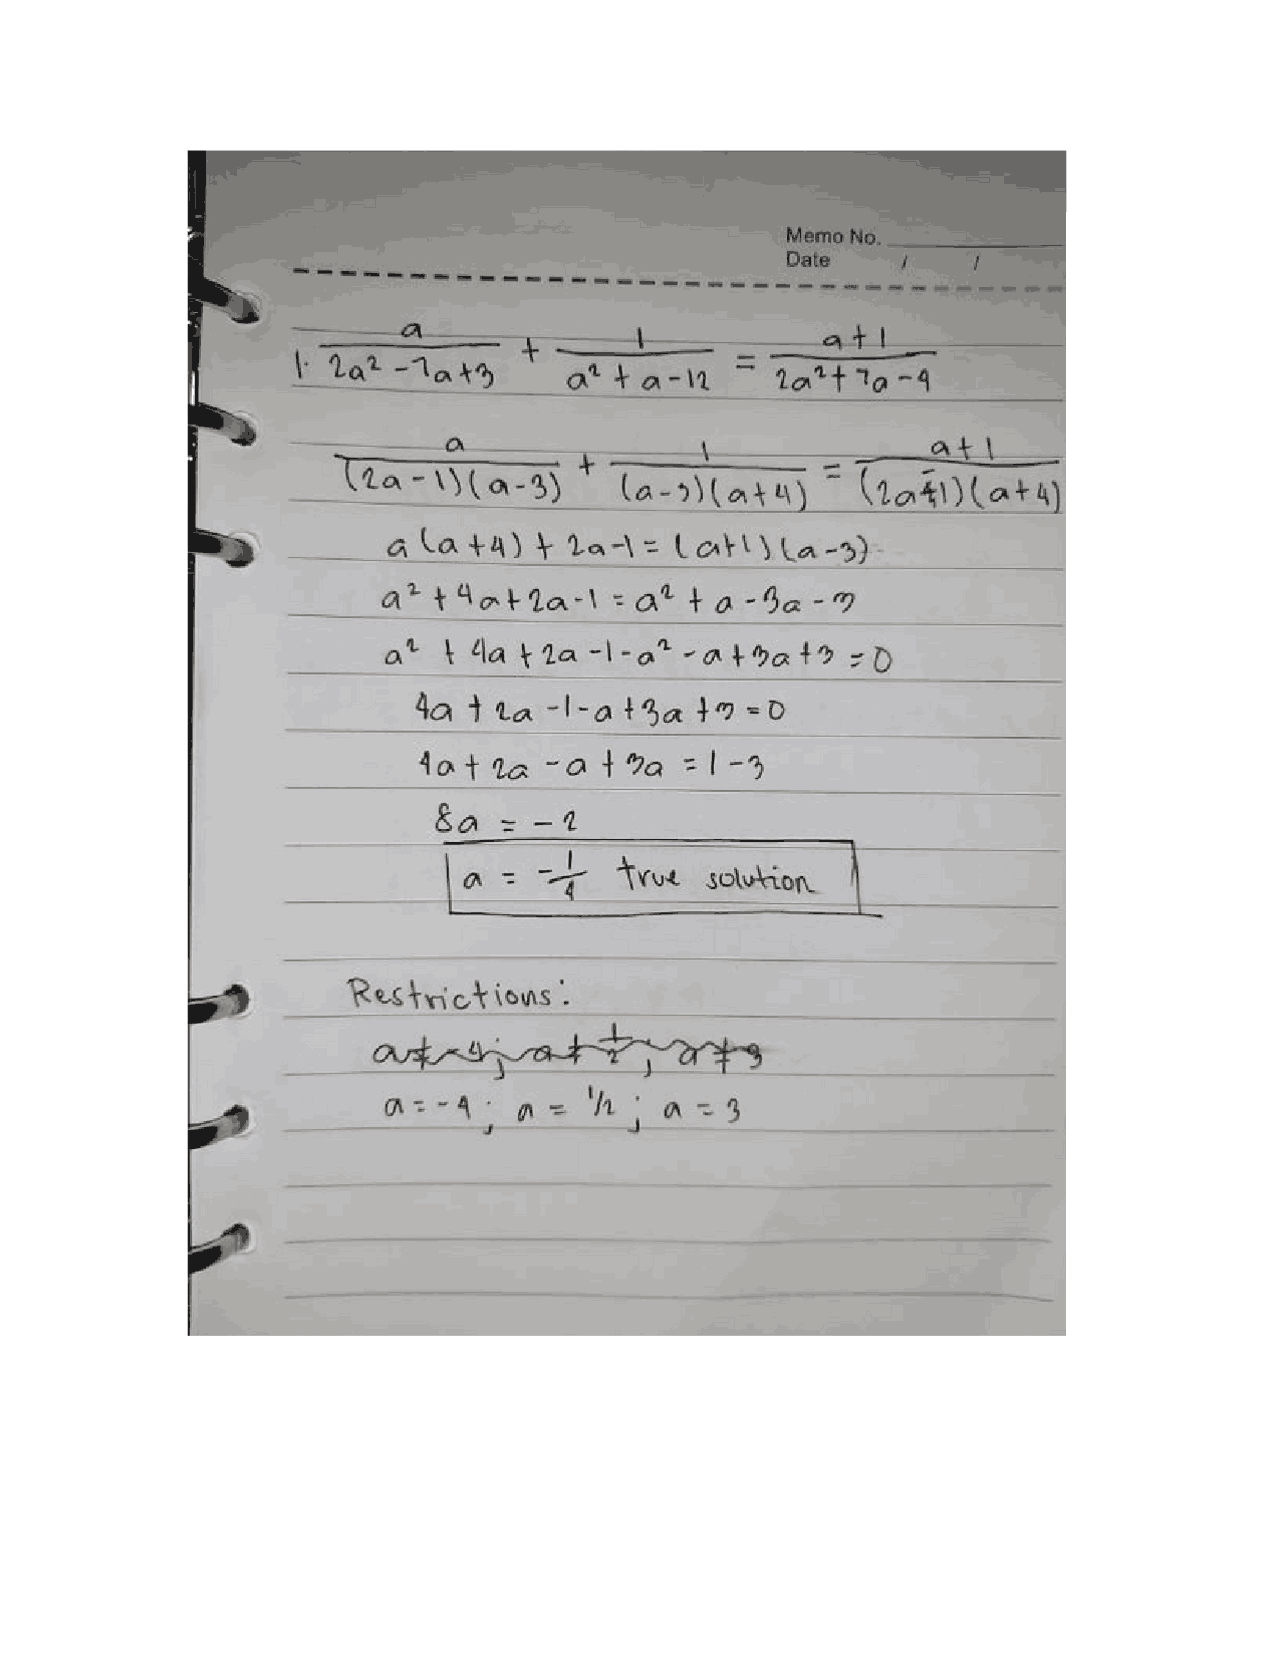 Memo No.
Date / /
1. a/(2a² - 7a + 3) + 1/(a² + a - 12) = (a + 1)/(2a² + 7a - 4)
a/((2a - 1)(a - 3)) + 1/((a - 3)(a + 4)) = (a + 1)/((2a - 1)(a + 4))
a(a + 4) + 2a - 1 = (a + 1)(a - 3)
a² + 4a + 2a - 1 = a² + a - 3a - 3
a² + 4a + 2a - 1 - a² - a + 3a + 3 = 0
4a + 2a - 1 - a + 3a + 3 = 0
4a + 2a - a + 3a = 1 - 3
8a = -2
a = -1/4 true solution
Restrictions:
a ≠ -4; a ≠ 1/2; a ≠ 3
a = -4; a = 1/2; a = 3